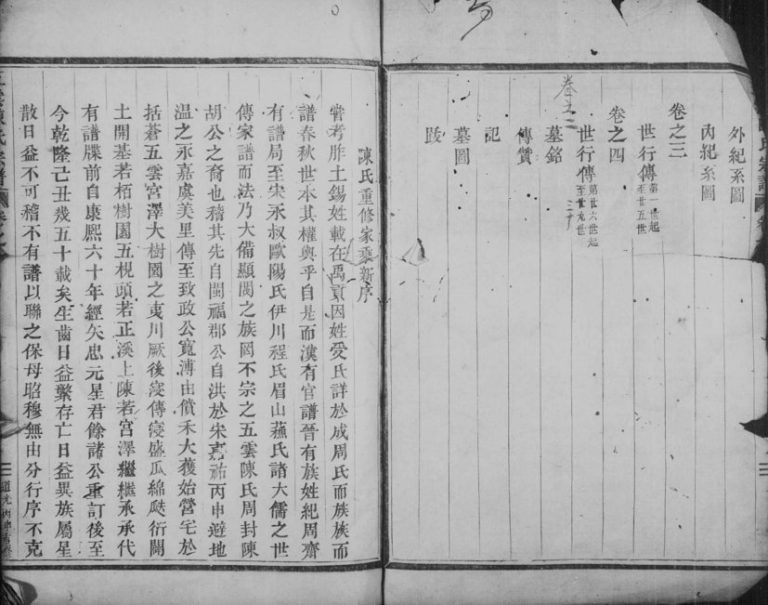 外紀系圖
內紀系圖
卷之三
世行傳 第一世起 至廿五世
卷之四
世行傳 第廿六世起 至世九世
卷五二
墓銘
傳贊
記
墓圖
跋
陳氏重修家乘新序
嘗考胙土錫姓載在禹貢因姓受氏詳於成周氏而族族而
譜春秋世本其權輿乎自是而漢有官譜晉有族姓紀周齊
有譜局至宋永叔歐陽氏伊川程氏眉山蘓氏諸大儒之世
傳家譜而法乃大備顯閥之族罔不宗之五雲陳氏周封陳
胡公之裔也稽其先自閩福郡公自洪於宋嘉祐丙申避地
温之永嘉虞美里傳至致政公寬溥由儐禾大獲始營宅於
括蒼五雲宮澤大樹園之夷川厥後寖傳寖盛瓜綿瓞衍開
土開基若栢樹園五梘頭若正溪上陳若宮澤繼繼承承代
有譜牒前自康熙六十年經矢忠元星君餘諸公重訂後至
今乾隆己丑幾五十載矣生齒日益繁存亡日益異族屬星
散日益不可稽不有譜以聯之保母昭穆無由分行序不克